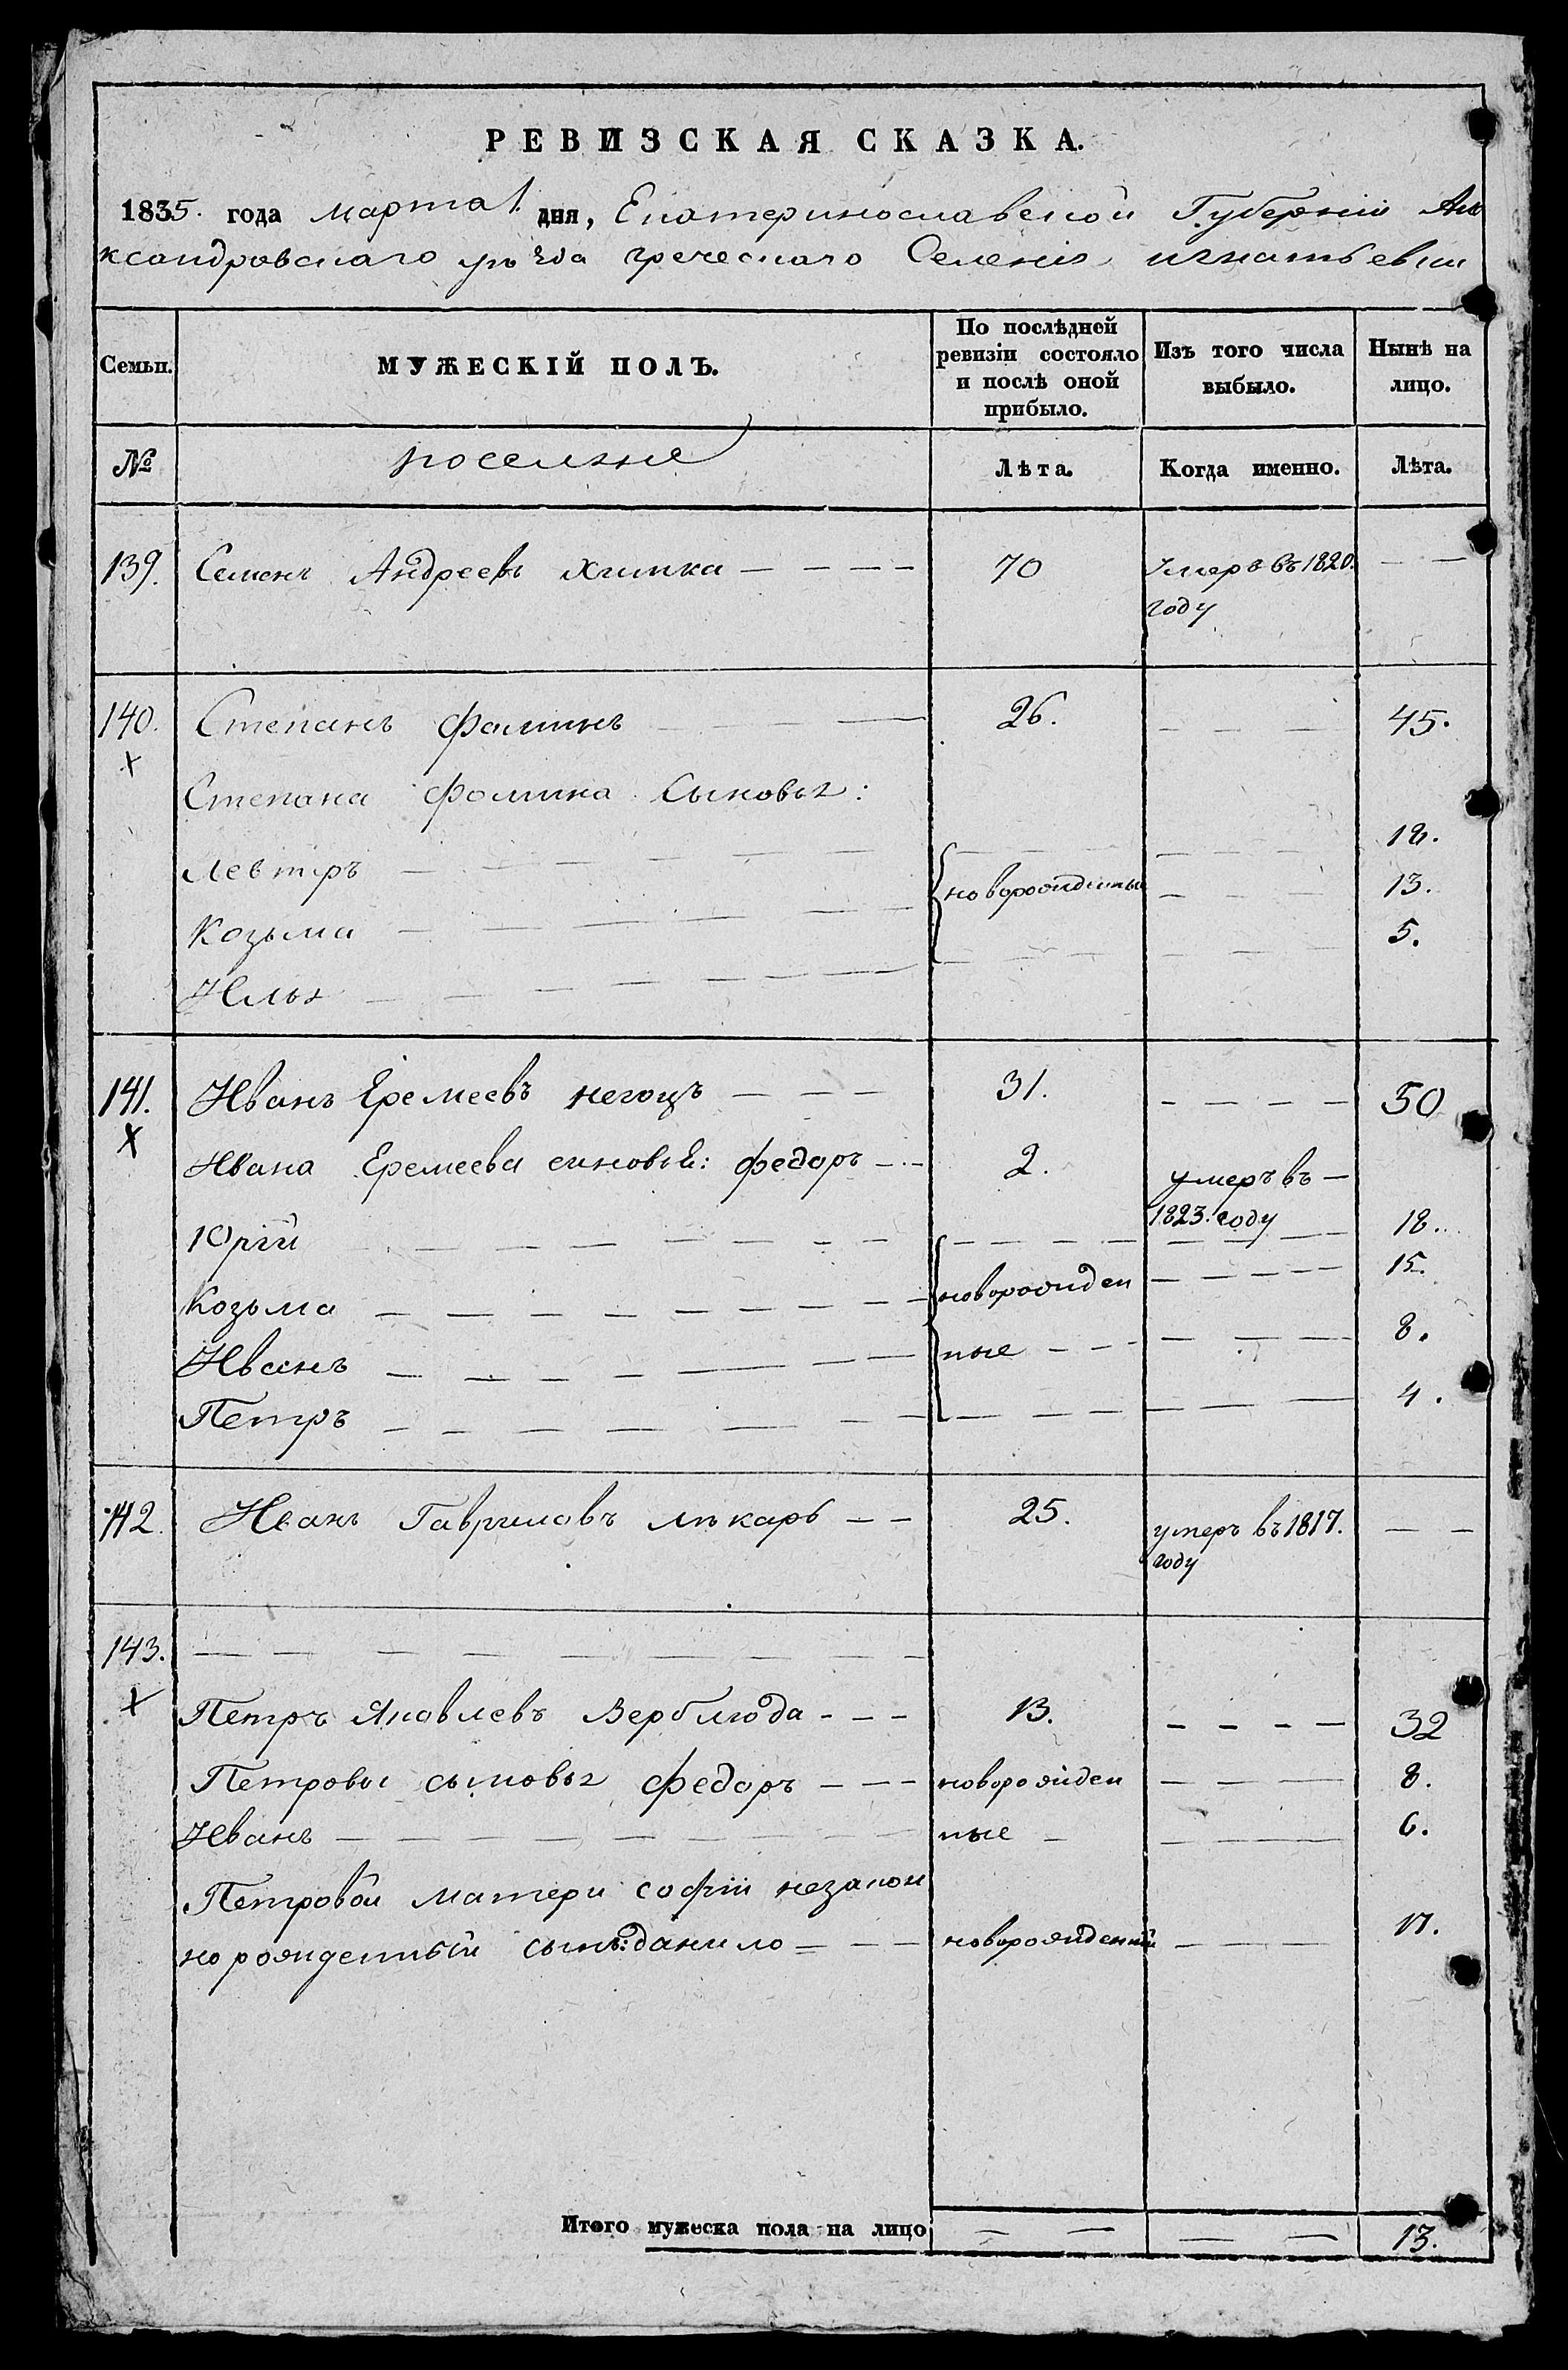 РЕВИЗСКАЯ СКАЗКА.
1835. года марта 1. дня, Екатеринославской Губерніи Але
ксандровскаго уѣзда греческаго Селенія игнатьевки
Семьи. МУЖЕСКІЙ ПОЛЪ. По послѣдней ревизіи состояло и послѣ оной прибыло. Изъ того числа выбыло. Нынѣ на лицо.
№ поселяне Лѣта. Когда именно. Лѣта.
139. Семенъ Андреевъ — — — — 70 Умеръ въ 1820. — —
году
140. Степанъ Фоминъ — — — 26. — — — 45.
х
Степана Фомина Сыновья:
Левтръ — — — — — — новорожденные — — — 18.
Козьма — — — — — — — — — 13.
Илья — — — — — — — — — — 5.
141. Иванъ Еремеевъ негоцъ — — — 31. — — — — 50
х
Ивана Еремеева синовья: федоръ — — 2. умеръ въ —
1823. году
Юрій — — — — — — — — — — — 18.
Козьма — — — — — — — — новорожден — — — — 15.
Иванъ — — — — — — — ные — — — — — — 8.
Петръ — — — — — — — — — — — — — 4.
142. Иванъ Гавриловъ лѣкарь — — 25. умеръ въ 1817. — —
году
143. — — — — — — — — —
х
Петръ Яковлевъ Верблюда — — — 13. — — — — 32
Петровы сыновья федоръ — — — новорожден — — — 8.
Иванъ — — — — — — — — ные — — — — 6.
Петровой матери софіи незакон
но рожденный сынъ: данило — — — новорожденный — — — 17.
Итого мужеска пола на лицо — — — — 13.